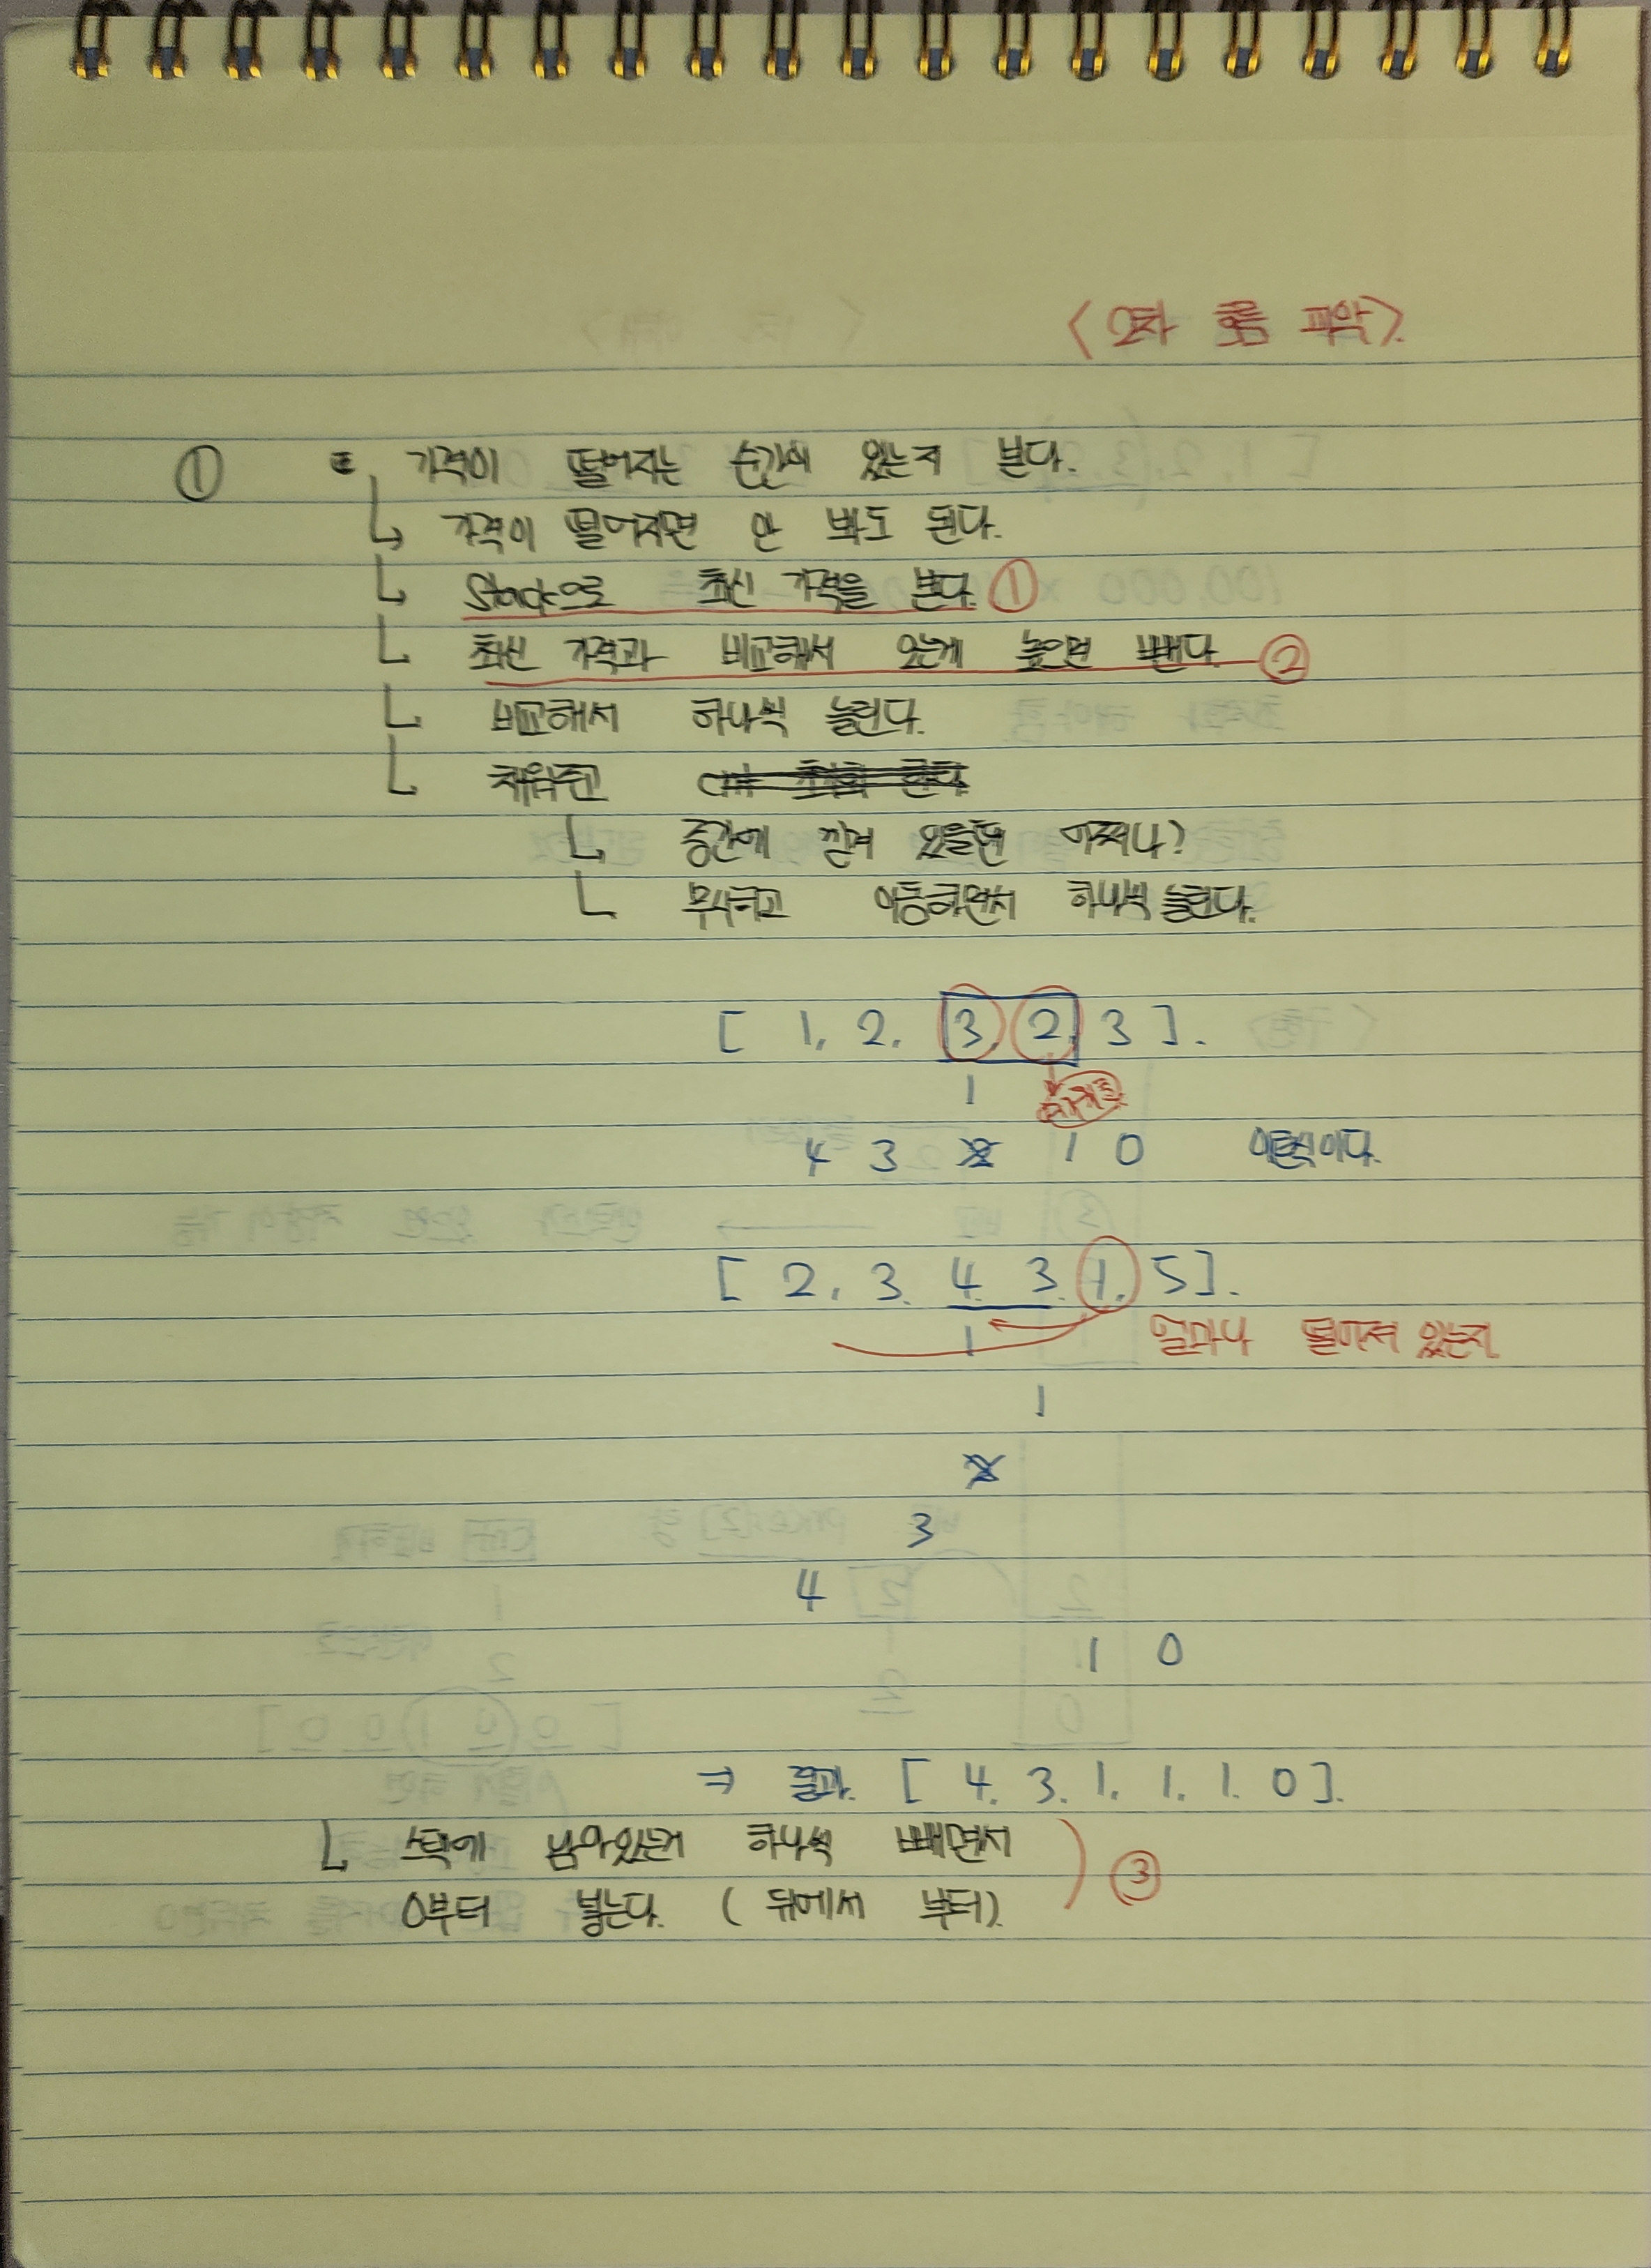 <2차 흐름 파악>
① 가격이 떨어지는 순간이 있는지 본다.
가격이 떨어지면 안 봐도 된다.
Stack으로 최신 가격을 본다. ①
최신 가격과 비교해서 있는게 높으면 뺀다. ②
비교해서 하나씩 늘린다.
채워주고
중간에 낀게 있을땐 어쩌냐?
무시하고 이동하면서 하나씩 늘린다.
[ 1, 2, 3, 2, 3 ].
1
4 3 2 1 0 이런식이다.
[ 2, 3, 4, 3, 1, 5 ].
1 얼마나 떨어져 있는지
1
2
3
4
1 0
⇒ 결과 [ 4, 3, 1, 1, 1, 0 ].
스택에 남아있는거 하나씩 빼면서
0부터 넣는다. ( 뒤에서 부터). ③